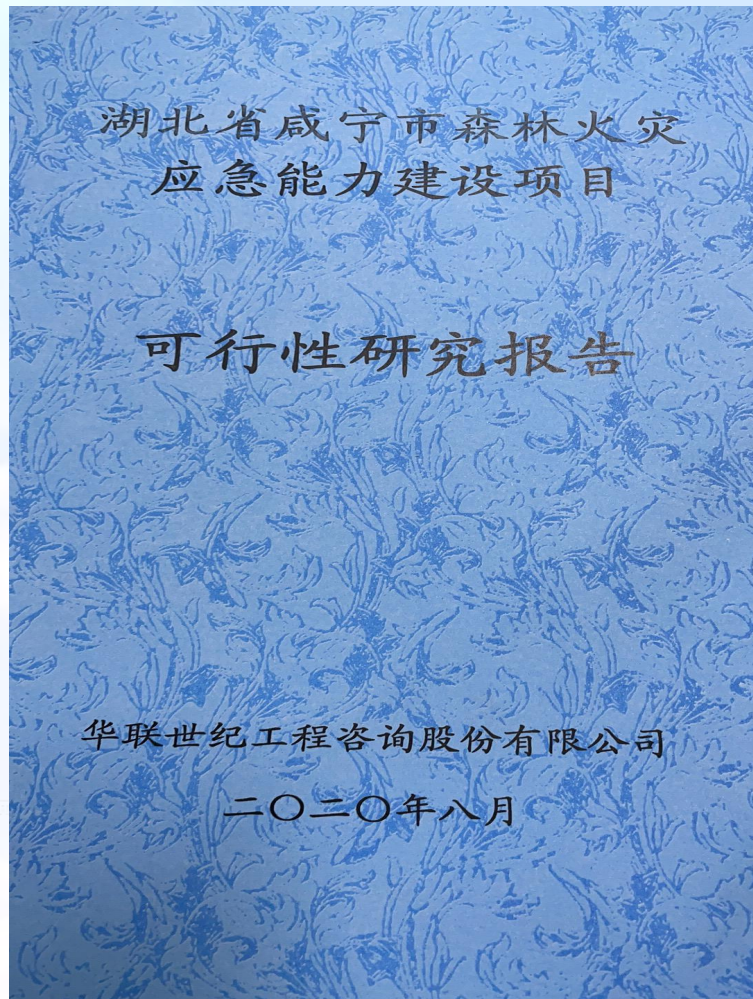 湖北省咸宁市森林火灾
应急能力建设项目
可行性研究报告
华联世纪工程咨询股份有限公司
二〇二〇年八月